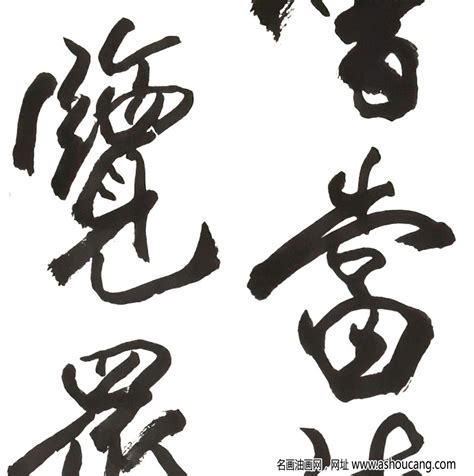 會當
覽眾
名画油画网，网址 www.ashoucang.com